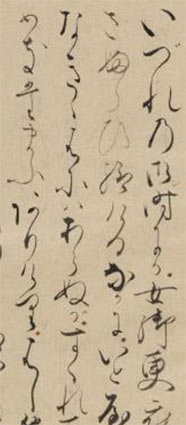 いづれの御時にか女御更衣
さぶらひ給けるなかにいとや
なきゝはにはあらぬがすぐれ
めき給ふありけりはじ